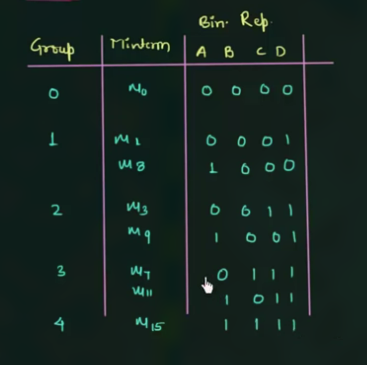 Bin. Rep.
Group Minterm A B C D
0 m0 0 0 0 0
1 m1 0 0 0 1
m8 1 0 0 0
2 m3 0 0 1 1
m9 1 0 0 1
3 m7 0 1 1 1
m11 1 0 1 1
4 m15 1 1 1 1